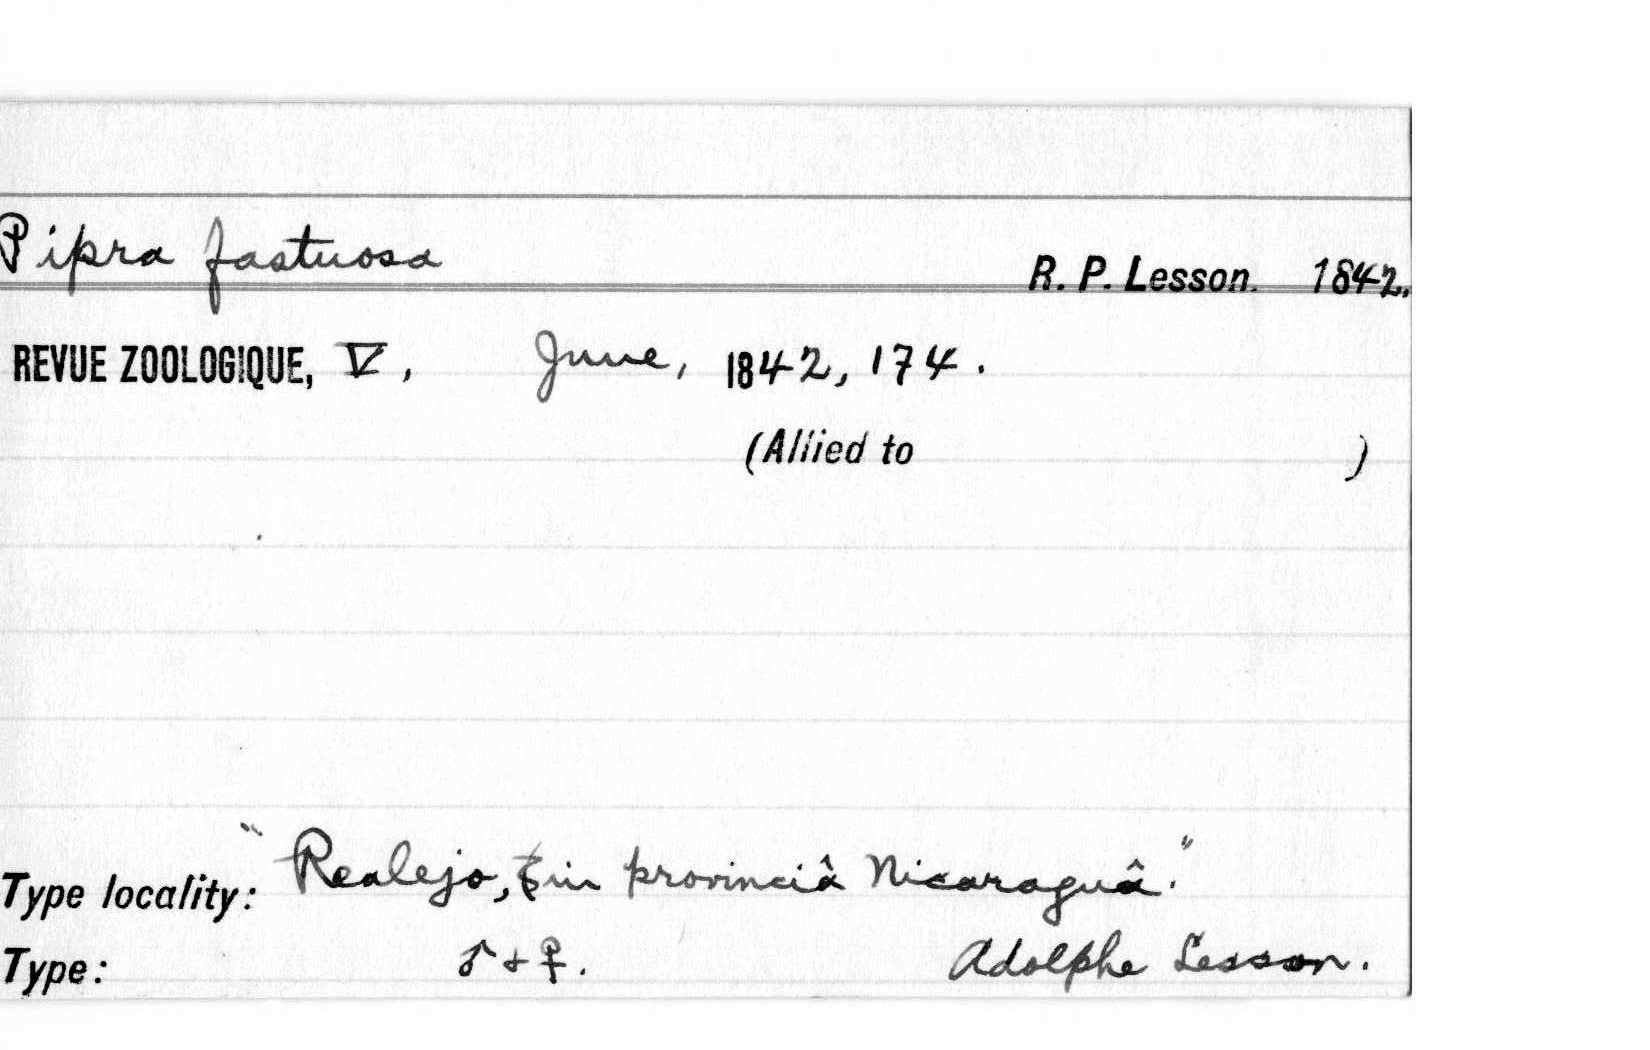 Pipra fastuosa
R. P. Lesson. 1842.
REVUE ZOOLOGIQUE, V, June, 1842, 174.
(Allied to )
Type locality: "Realejo, in provinciâ Nicaraguâ."
Type: ♂ + ♀. Adolphe Lesson.